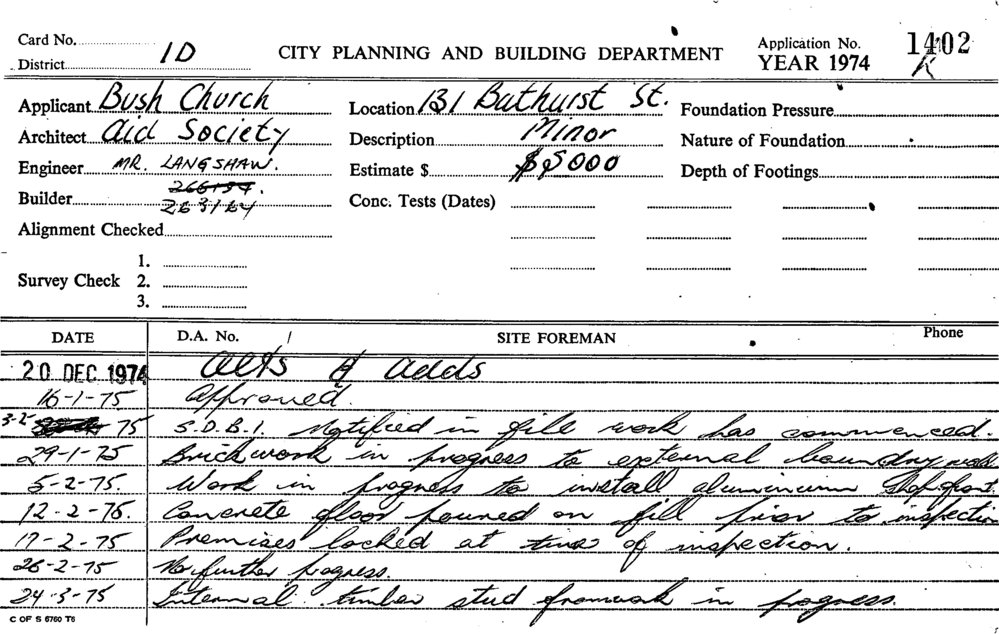 Card No. 1D CITY PLANNING AND BUILDING DEPARTMENT Application No. 1402
District YEAR 1974 K
Applicant Bush Church Location 131 Bathurst St. Foundation Pressure
Architect Aid Society Description Minor Nature of Foundation
Engineer MR. LANGSHAW. Estimate $ $5000 Depth of Footings
Builder 263164 Conc. Tests (Dates)
Alignment Checked
1.
Survey Check 2.
3.
DATE D.A. No. / SITE FOREMAN Phone
20 DEC 1974 Alts & Adds
16-1-75 Approved.
3-2 75 S.D.B.I. Notified in file work has commenced.
29-1-75 Brickwork in progress to external boundry wall
5-2-75. Work in progress to install aluminium Shopfront.
12-2-75. Concrete floor poured on fill prior to inspection
17-2-75 Premises locked at time of inspection.
26-2-75 No further progress.
24-3-75 Internal timber stud framework in progress.
C OF S 6760 T6